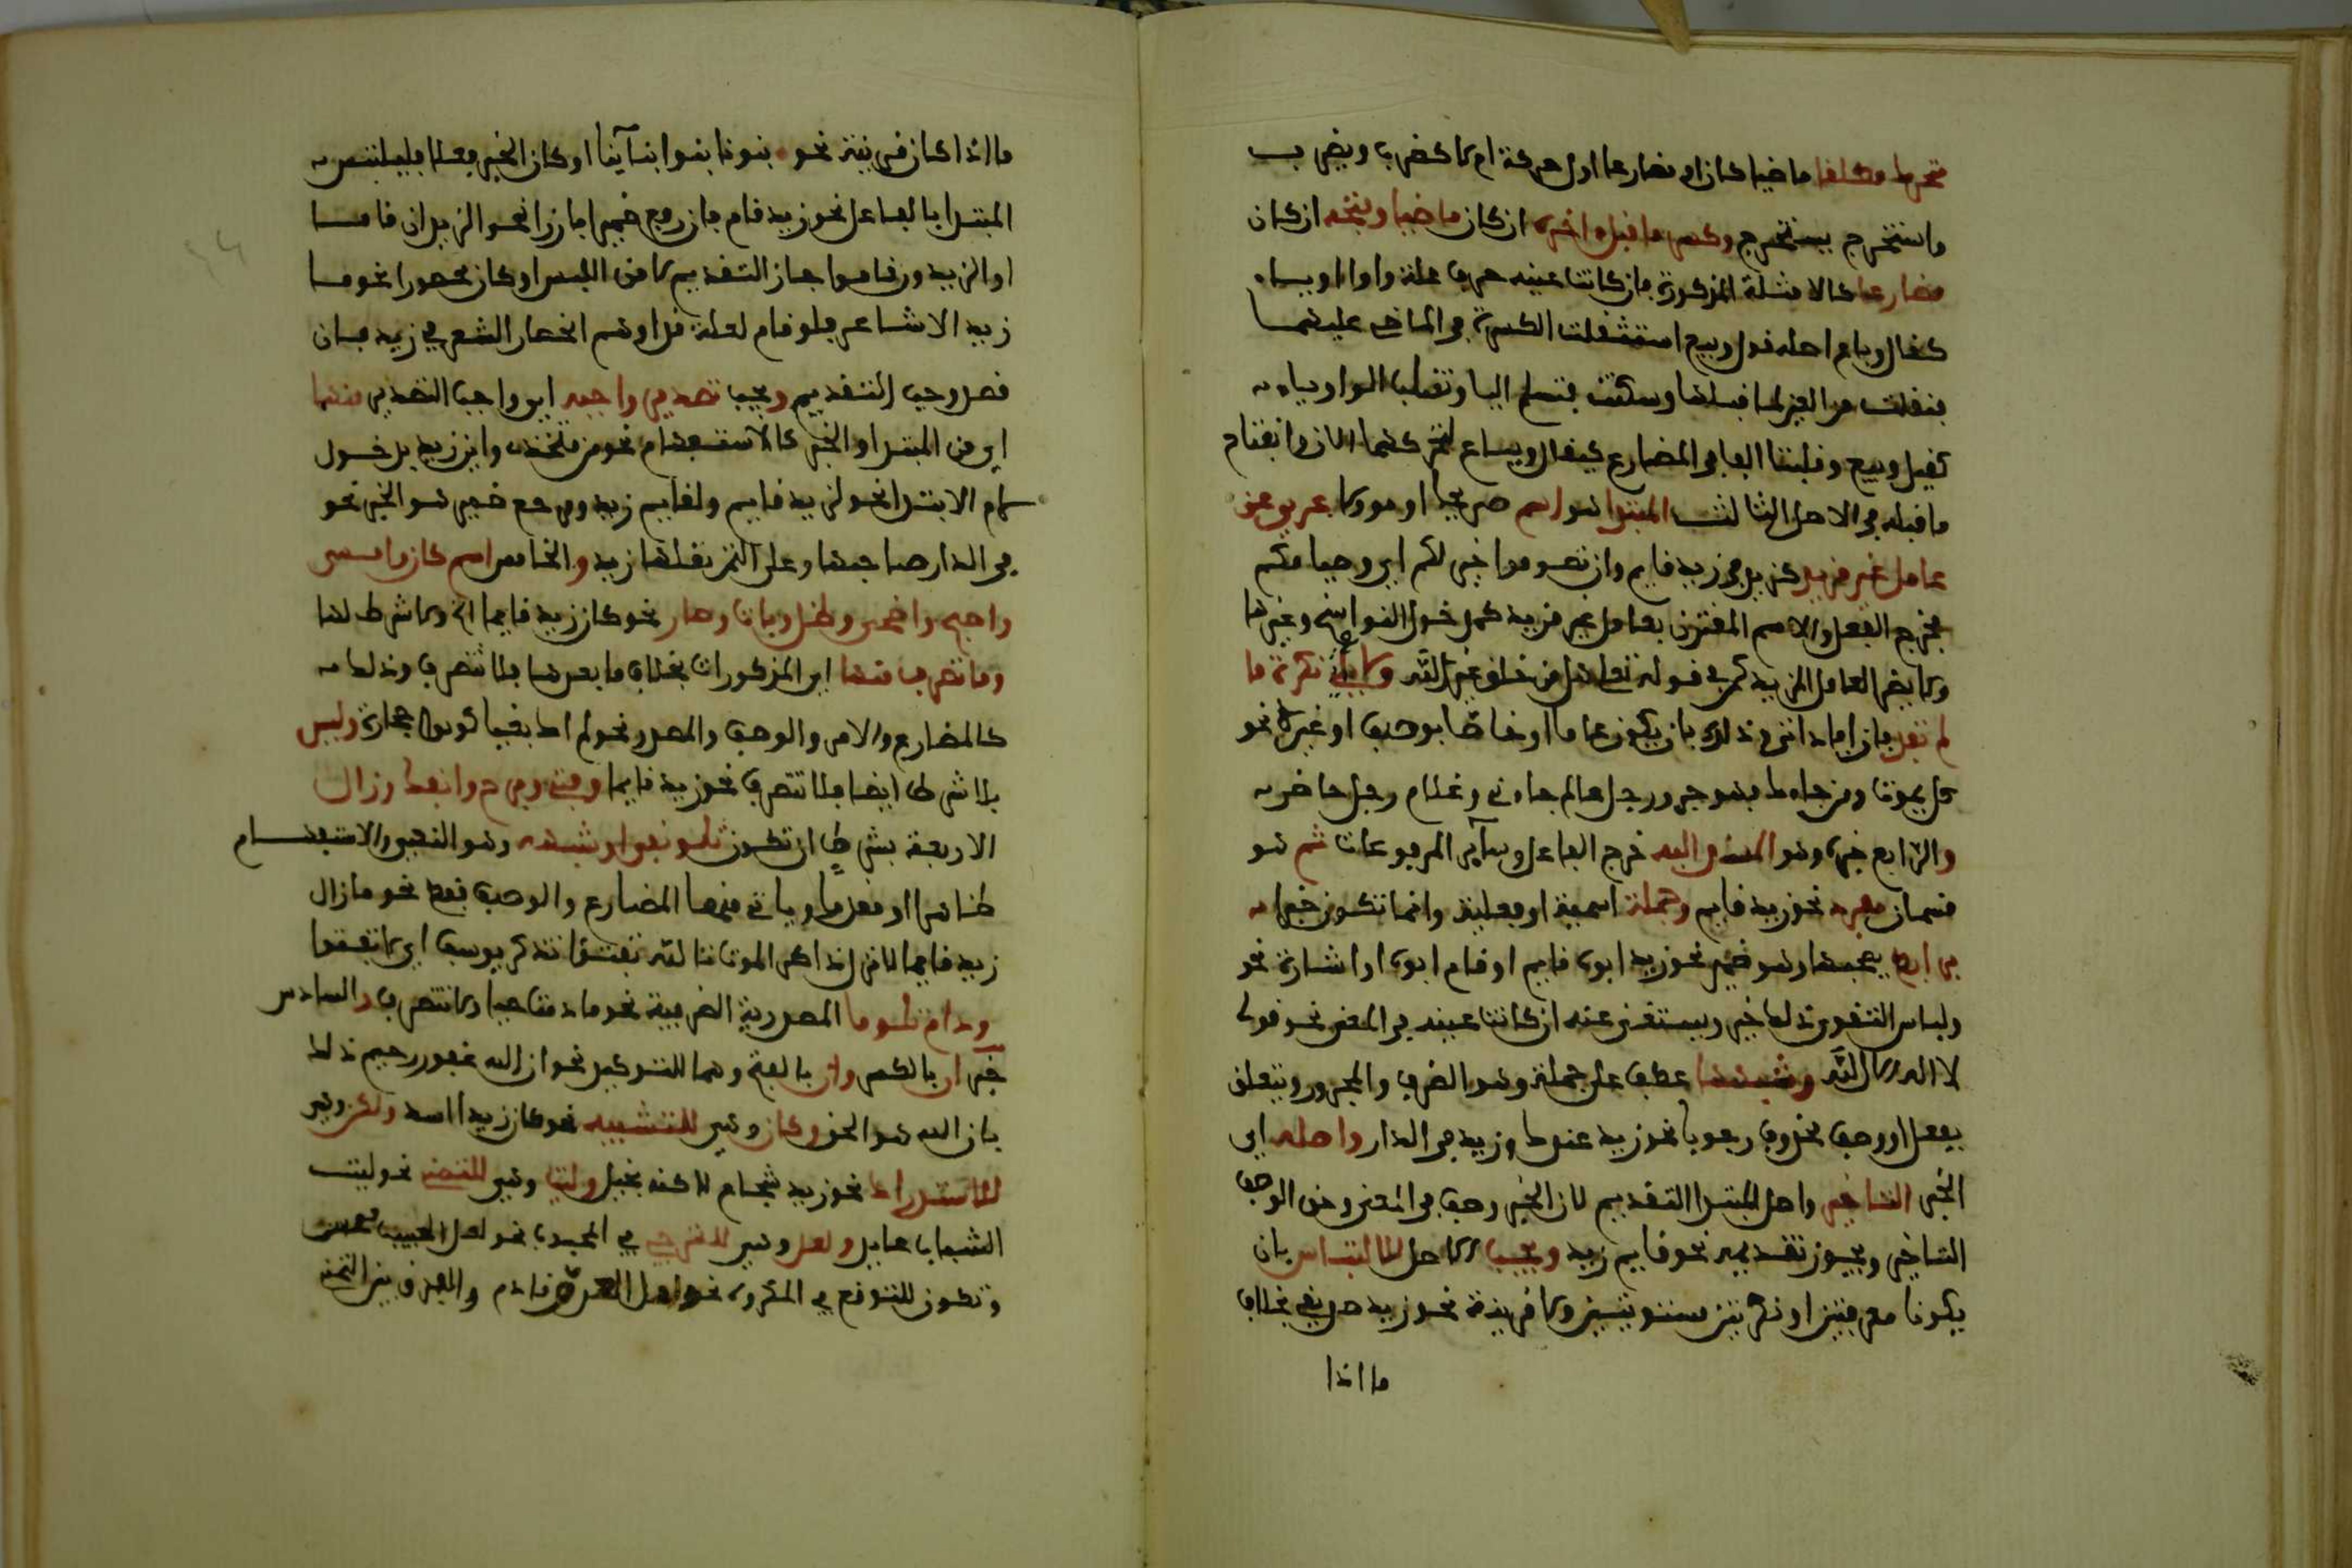 متحرك مطلقا ماضيا كان او مضارعا اول حركة ام لا كضرب ويضرب
واستخرج يستخرج وكسر ما قبل اخره ان كان ماضيا وفتحه ان كان
مضارعا كالامثلة المذكورة فان كانت عينه حرف علة واوا او ياء
كقال وباع اصله قول وبيع استثقلت الكسرة في الماضي عليهما
فنقلت من العين لما قبلها وسكنت فتسلم اليا وتقلب الواو ياء
كقيل وبيع وقلبتا الفا في المضارع كيقال ويباع لتحركهما الان وانفتاح
ما قبله في الاصل الثالث المبتدا هو اسم صريحا او مؤولا عري عن
عامل غير مزيد كزيد في زيد قايم وان تصوموا خير لكم اي وصيامكم
فخرج الفعل والاسم المقترن بعامل غير مزيد كمدخول النواسخ وغيرها
ولا يضر العامل المزيد كمن في قوله تعالى هل من خالق غير الله ولا ياتي نكرة ما
لم تفد فان افادت اتى وذلك بان يكون عاما او خاصا بوصف او غيره نحو
كل يموت ومن جاءك فهو حر ورجل عالم جاءني وغلام رجل حاضر
والرابع خبره وهو المسند اليه خرج الفاعل وساير المرفوعات ثم هو
قسمان مفرد نحو زيد قايم وجملة اسمية او فعلية وانما تكون خبرا
برابط يصحبها وهو ضمير نحو زيد ابوه قايم او قام ابوه او اشارة نحو
ولباس التقوى ذلك خير ويستغنى عنه ان كانت عينه في المعنى نحو قولي
لا اله الا الله وشبهها عطف على جملة وهو الظرف والمجرور ويتعلق
بفعل او وصف محذوف وجوبا نحو زيد عندك وزيد في الدار واصله اي
الخبر التاخير واصل المبتدا التقديم لان الخبر وصف في المعنى وحق الوصف
التاخير ويجوز تقديمه نحو قايم زيد ويجب الاصل للالتباس بان
يكونا معرفتين او نكرتين مستويتين ولا قرينة نحو زيد صديقي بخلاف
ما اذا
ما اذا كان قرينة نحو بنونا بنوا ابناينا او كان الخبر فعلا فيلتبس
المبتدا بالفاعل نحو زيد قام فان رفع ضميرا بارزا نحو الزيدان قاما
او الزيدون قاموا جاز التقديم لامن اللبس او كان محصورا نحو ما
زيد الا شاعر فلو قدم لعله قد اوهم انحصار الشعر في زيد فان
قصد وجب التقديم ويجب تصدير واجبه اي واجب التصدير منهما
اي من المبتدا والخبر كالاستفهام نحو من منجدي واين زيد ومدخول
لام الابتدا نحو لزيد قايم ولقايم زيد ومرجع ضمير هو الخبر نحو
في الدار صاحبها وعلى التمرة مثلها زيد والخامس اسم كان وامسى
واصبح واضحى وظل وبات وصار نحو كان زيد قايما الخ ولا شرط لها
وما تصرف منها اي المذكورات بخلاف ما بعدها فلا تتصرف وذلك
كالمضارع والامر والوصف والمصدر نحو لم اك بغيا كونوا حجارة وليس
بلا شرط ايضا فلا تتصرف نحو زيد قايما وفتئ وبرح وانفك وزال
الاربعة بشرط ان تكون تلو نفي او شبهه وهو النهي والاستفهام
ظاهرا او مقدرا وياتي منها المضارع والوصف فقط نحو ما زال
زيد قايما لا تزل ذاكر الموت تالله تفتؤا تذكر يوسف اي لا تفتؤا
ودام تلو ما المصدرية الظرفية نحو ما دمت حيا ولا تتصرف والسادس
خبر ان بالكسر وان بالفتح وهما للتوكيد نحو ان الله غفور رحيم ذلك
بان الله هو الحق وكان وهي للتشبيه نحو كان زيدا اسد ولكن وهي
للاستدراك نحو زيد شجاع لاكنه بخيل وليت وهي للتمني نحو ليت
الشباب عايد ولعل وهي للترجي في المحبوب نحو لعل الحبيب محسن
وتكون للتوقع في المكروه نحو لعل العدو قادم والفرق بين التمني